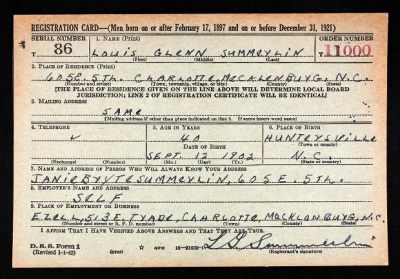 REGISTRATION CARD—(Men born on or after February 17, 1897 and on or before December 31, 1921)
SERIAL NUMBER 1. NAME (Print) ORDER NUMBER
T 86 LOUIS GLENN SUMMEYLIN T 11000
(First) (Middle) (Last)
2. PLACE OF RESIDENCE (Print)
605 E. 5th. CHARLOTTE, MECKLENBUYG, N.C.
(Number and street) (Town, township, village, or city) (County) (State)
[THE PLACE OF RESIDENCE GIVEN ON THE LINE ABOVE WILL DETERMINE LOCAL BOARD
JURISDICTION; LINE 2 OF REGISTRATION CERTIFICATE WILL BE IDENTICAL]
3. MAILING ADDRESS
SAME
[Mailing address if other than place indicated on line 2. If same insert word same]
4. TELEPHONE 5. AGE IN YEARS 6. PLACE OF BIRTH
40 HUNTEYSVILLE
DATE OF BIRTH (Town or county)
SEPT. 12 1902 N.C.
(Exchange) (Number) (Mo.) (Day) (Yr.) (State or country)
7. NAME AND ADDRESS OF PERSON WHO WILL ALWAYS KNOW YOUR ADDRESS
SUMMEYLIN, 605 E. 5th.
8. EMPLOYER'S NAME AND ADDRESS
SELF
9. PLACE OF EMPLOYMENT OR BUSINESS
EZELL, 513 E. TYADE, CHARLOTTE, MECKLENBUYG, N.C.
(Number and street or R. F. D. number) (Town) (County) (State)
I AFFIRM THAT I HAVE VERIFIED ABOVE ANSWERS AND THAT THEY ARE TRUE.
D. S. S. Form 1
(Revised 1-1-42) (over)
(Registrant's signature)